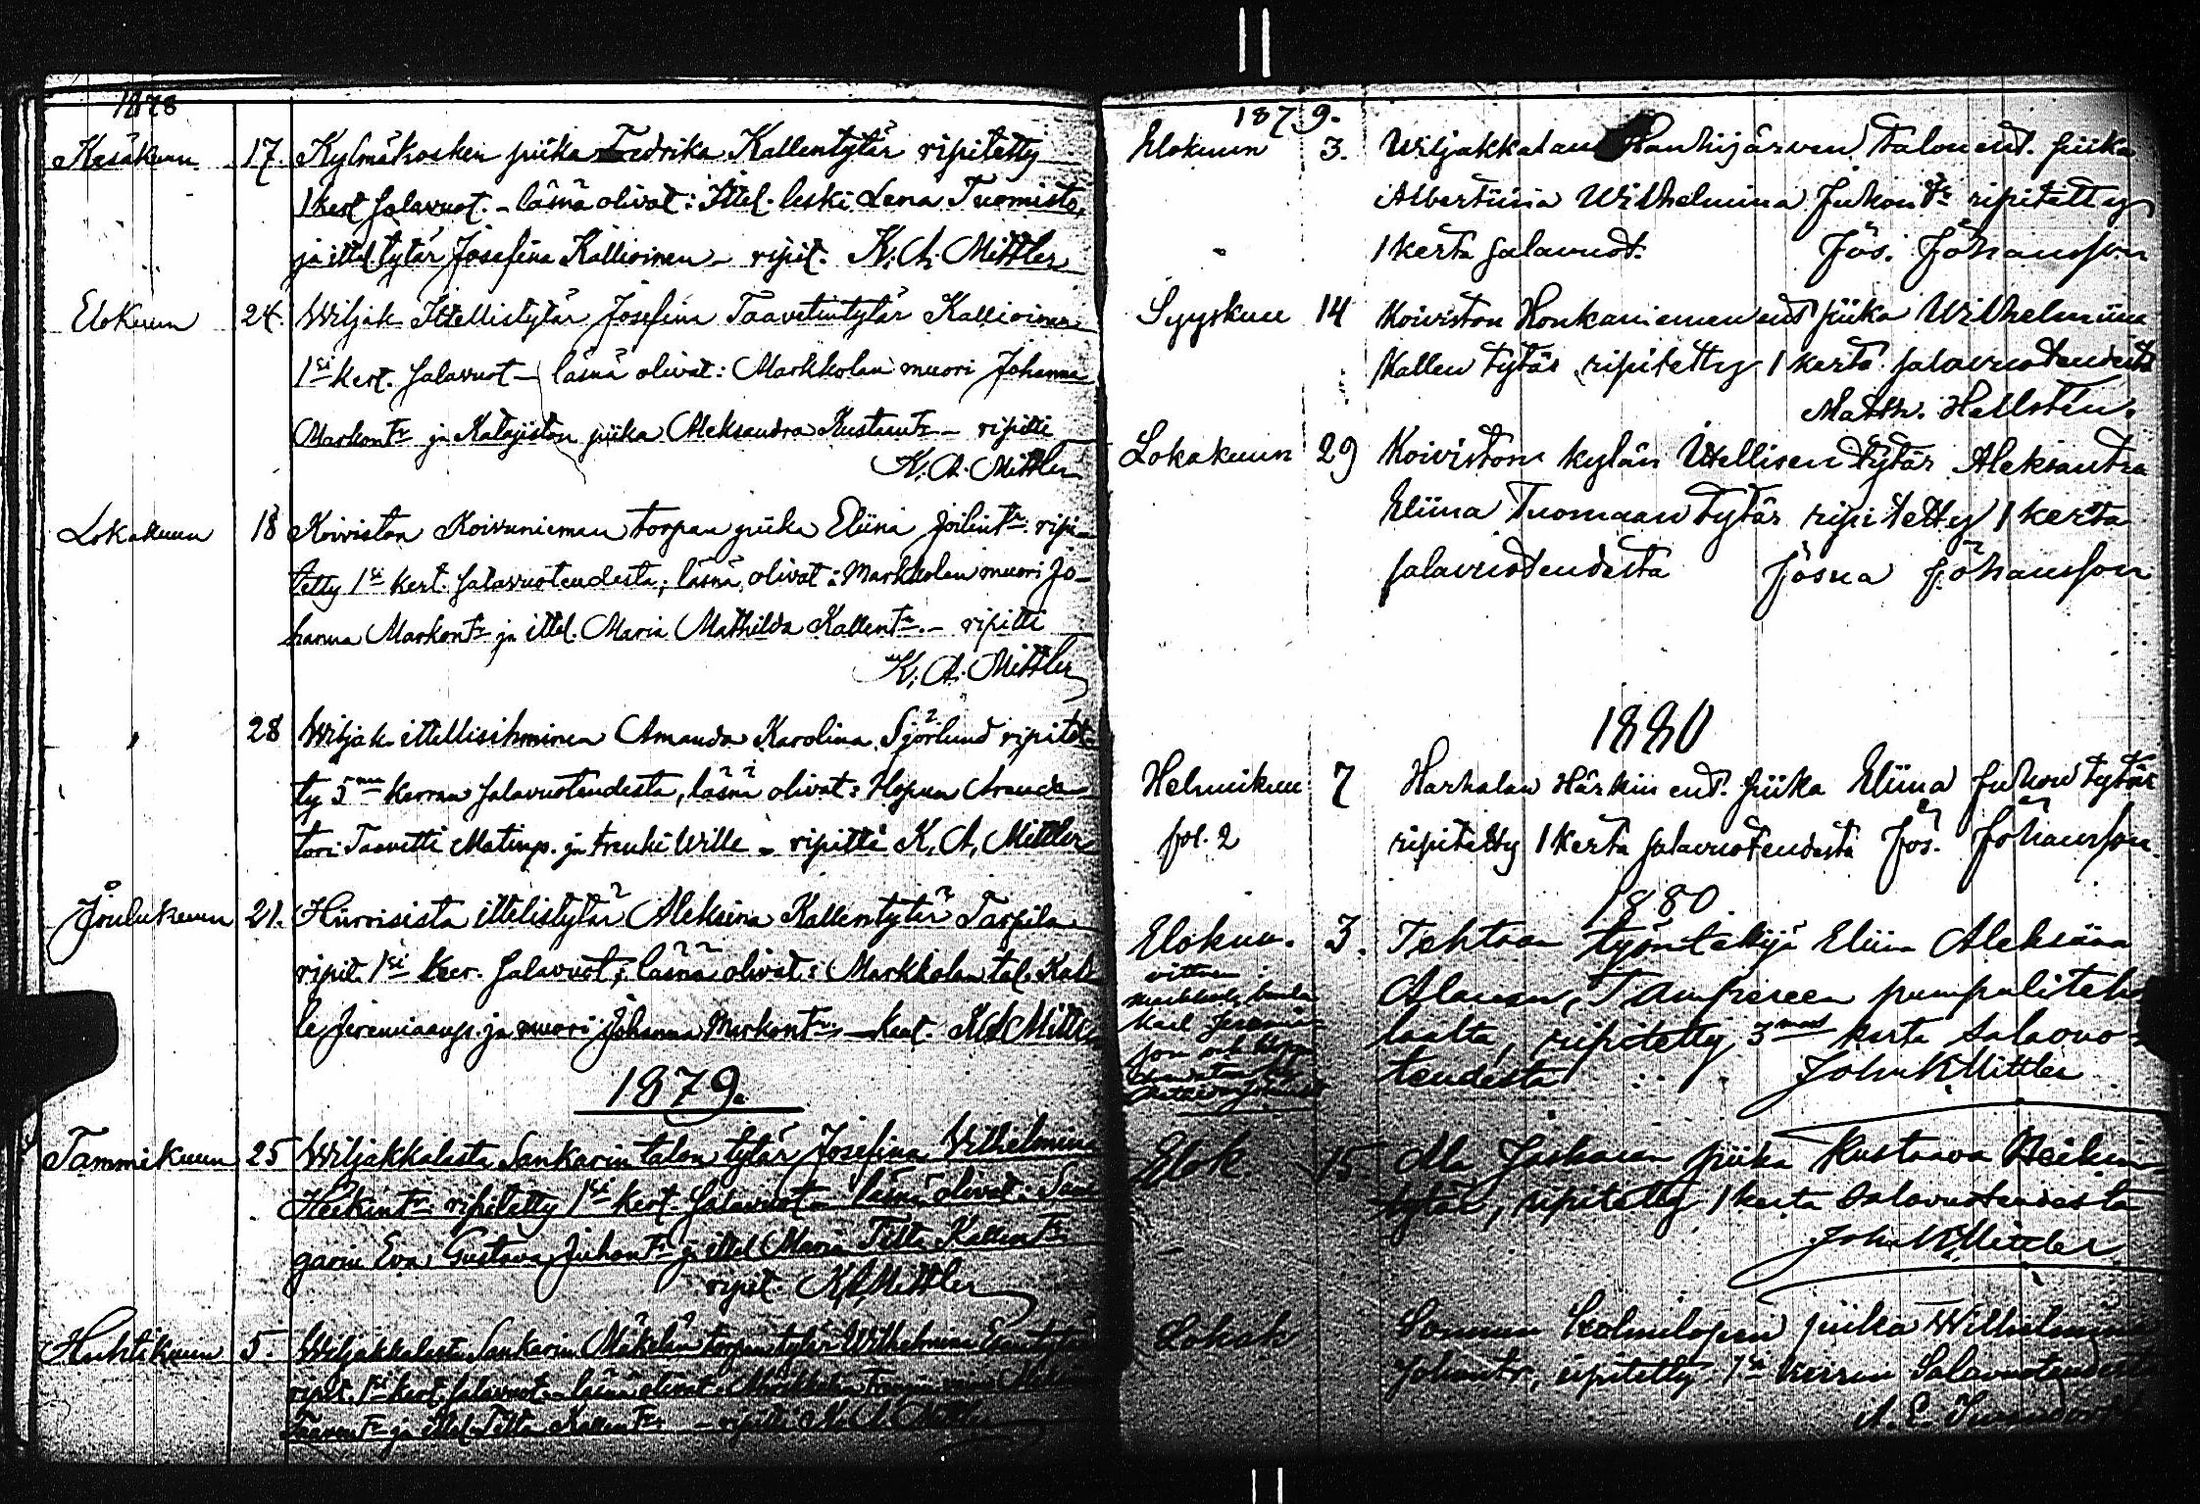 1878
Kesäkuun 17. Kylmäkosken piika Fredrika Kallentytär ripitetty
1 kert salavuot. – läsnä olivat: Ittel. leski Lena Tuomisto,
ja ittel tytär Josefina Kallioinen – ripit. K. A. Mittler
Elokuun 24. Wiljak Ittellistytär Josefina Taavetintytär Kallioinen
1si kert. salavuot – läsnä olivat: Markkolan muori Johanna
Markontr ja Katajiston piika Aleksandra Kustaantr – ripitti
K. A. Mittler
Lokakuun 18 Koiviston Koivuniemen torpan piika Eliina Joilintr. ripi-
tetty 1si kert. salavuoteudesta; läsnä olivat: Markkolan muori Jo-
hanna Markontr ja ittel. Maria Mathilda Kallentr. – ripitti
K. A. Mittler
" 28 Wiljak. ittellisihminen Amanda Karolina Sjörlund ripitet-
ty 5en kerran salavuoteudesta, läsnä olivat: Hopun
tori Taavetti Matinp. ja trenki Wille – ripitti K. A. Mittler
Joulukuun 21. Hurrisista ittelistytär Aleksina Kallentytär Tarpila
ripit. 1si ker. salavuot; läsnä olivat: Markkolan tal. Kal-
le Jeremiaanp. ja muori Johanna Markontr, – K A Mittler
1879.
Tammikuun 25 Wiljakkalasta Sankarin talon tytär Josefina Wilhelmina
Heikintr. ripitetty 1si kert. salavuot – läsnä olivat: San
garin Eva Gustava Juhontr ja ittel Maria Titta Kallentr
ripit. K A Mittler
Huhtikuun 5. Wiljakkalasta Sankarin Mäkelän torpan tytär Wilhelmina
ripit. 1si kert. salavuot – läsnä olivat
Taaventr ja ittel Titta Kallentr – ripitti K. A. Mittler
1879.
Elokuun 3. Wiljakkalan Hanhijärven talon ent. piika
Albertiina Wilhelmina Juhontr ripitetty
1 kerta salavuot. Jos. Johansson
Syyskuu 14 Koiviston Honkaniemen ent piika Wilhelmiina
Kallen tytär ripitetty 1 kerta salavuoteudesta
Matth. Hellstén.
Lokakuun 29 Koiviston kylän Ittellisen tytär Aleksandra
Eliina Tuomaan tytär ripitetty 1 kerta
salavuoteudesta Josua Johansson
1880
Helmikuu 7 Harhalan Härkin ent. piika Eliina Juhon tytär
fol. 2 ripitetty 1 kerta salavuoteudesta Jos. Johansson.
1880
Elokuu. 3. Tehtaan työntekijä Eliin Aleksäna
vittnen:
Alanen, Tampereen pumpuliteh-
Karl Jeremia-
laalta, ripitetty 3mas kerta salavuo-
son och
teudesta John K Mittler
Elok 15. Ala Jaskaran piika Kustaava Heikin-
tytär, ripitetty 1 kerta salavuoteudesta
John K Mittler
Lokak piika Wilhelmiina
Johantr, ripitetty 1si kerran salavuoteudesta
A. E.